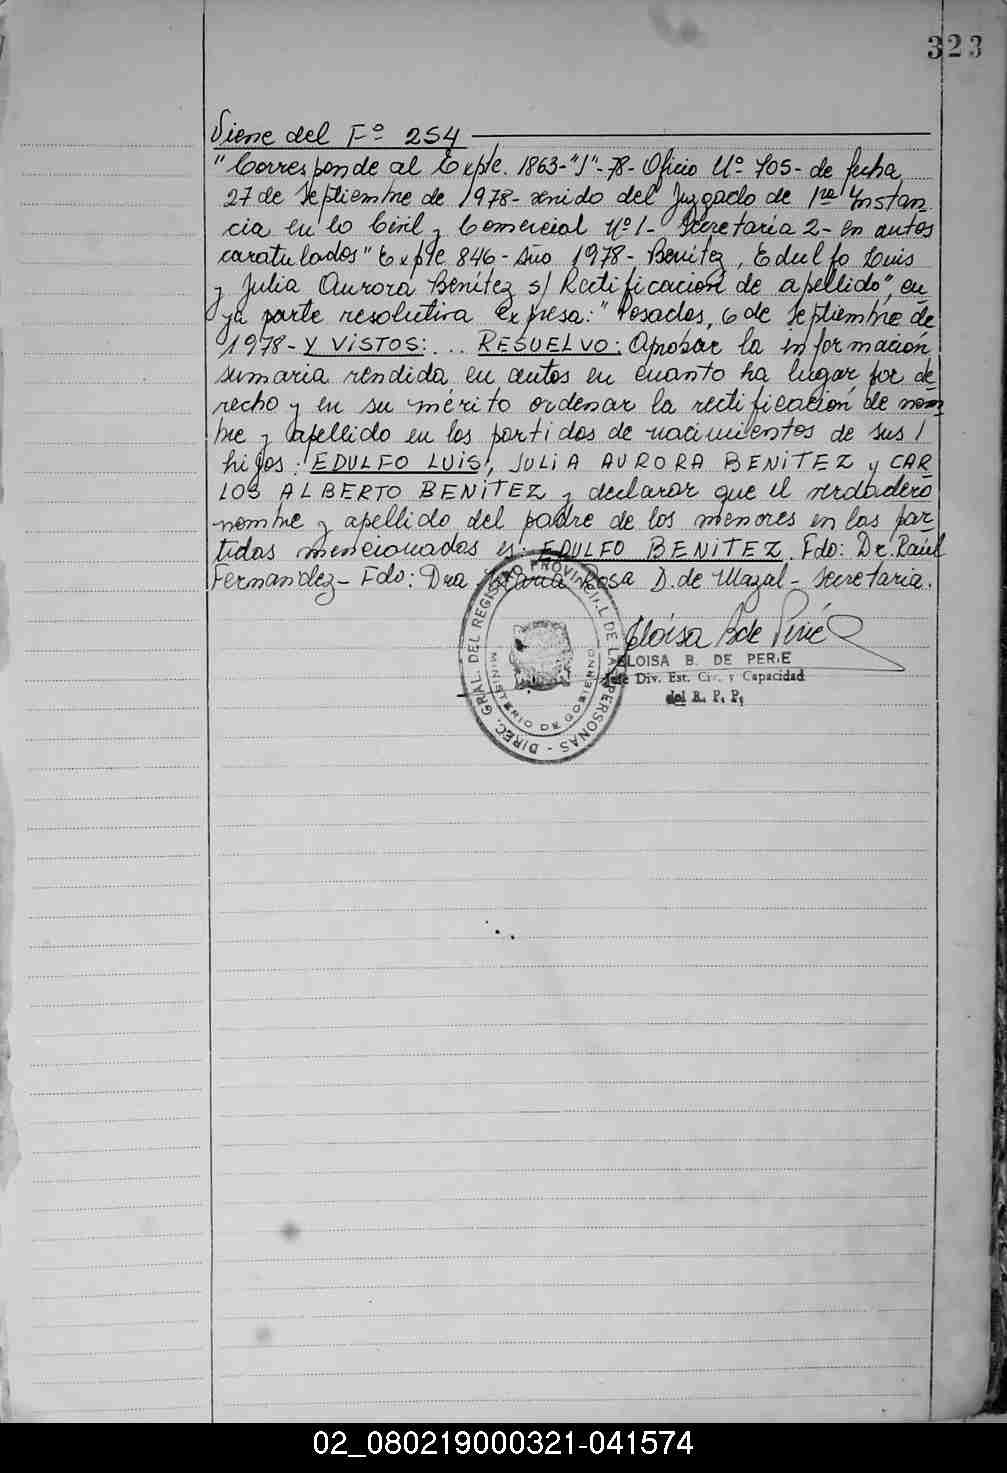 323
Viene del Fº 254
"Corresponde al Expte. 1863-"J"-78- Oficio Nº 705- de fecha
27 de Septiembre de 1978- venido del Juzgado de 1ra Instan
cia en lo Civil y Comercial Nº 1- Secretaría 2- en autos
caratulados "Expte. 846- Año 1978- Benítez, Edulfo Luis
y Julia Aurora Benítez s/ Rectificación de apellido", cu
ya parte resolutiva expresa: "Posadas, 6 de Septiembre de
1978- Y VISTOS: ... RESUELVO: Aprobar la información
sumaria rendida en autos en cuanto ha lugar por de
recho y en su mérito ordenar la rectificación de nom
bre y apellido en las partidas de nacimientos de sus
hijos: EDULFO LUIS, JULIA AURORA BENITEZ y CAR
LOS ALBERTO BENITEZ y declarar que el verdadero
nombre y apellido del padre de los menores en las par
tidas mencionadas es: EDULFO BENITEZ. Fdo: Dr. Raúl
Fernandez- Fdo: Dra María Rosa D. de Mazal- Secretaria.
DIREC. GRAL. DEL REGISTRO PROVINCIAL DE LAS PERSONAS -
MINISTERIO DE GOBIERNO
Eloisa B de Perié
ELOISA B. DE PERIE
Jefe Div. Est. Civ. y Capacidad
del R. P. P.
02_080219000321-041574